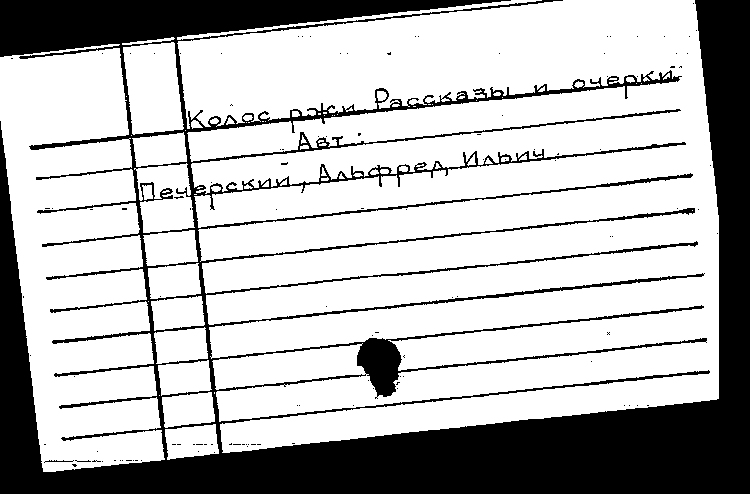 Колос ржи. Рассказы и очерки.
Авт.:
Печерский, Альфред, Ильич.